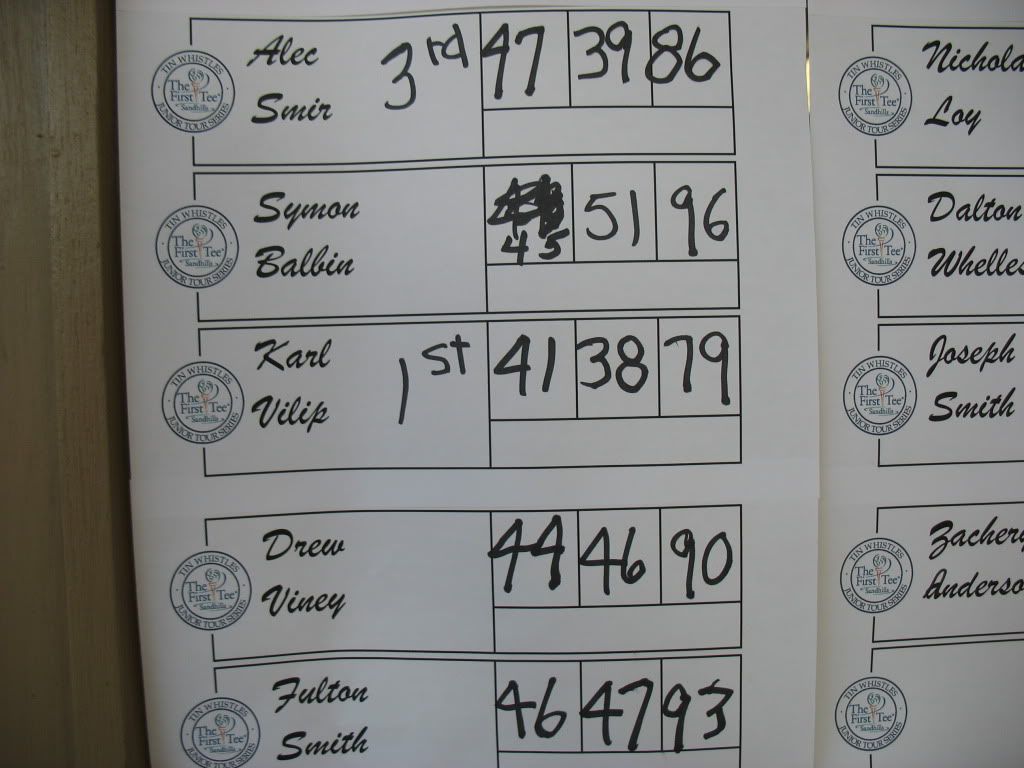 TIN WHISTLES
The First Tee
Sandhills
JUNIOR TOUR SERIES
Alec
Smir
3rd 47 39 86
TIN WHISTLES
The First Tee
Sandhills
JUNIOR TOUR SERIES
Symon
Balbin
45 51 96
TIN WHISTLES
The First Tee
Sandhills
JUNIOR TOUR SERIES
Karl
Vilip
1st 41 38 79
TIN WHISTLES
The First Tee
Sandhills
JUNIOR TOUR SERIES
Drew
Viney
44 46 90
TIN WHISTLES
The First Tee
Sandhills
Fulton
Smith
46 47 93
TIN WHISTLES
The First Tee
Sandhills
JUNIOR TOUR SERIES
Nichola
Loy
TIN WHISTLES
The First Tee
Sandhills
JUNIOR TOUR SERIES
Dalton
Whelles
TIN WHISTLES
The First Tee
Sandhills
JUNIOR TOUR SERIES
Joseph
Smith
TIN WHISTLES
The First Tee
Sandhills
JUNIOR TOUR SERIES
Zachery
Anderso
TIN WHISTLES
The First Tee
Sandhills
JUNIOR TOUR SERIES